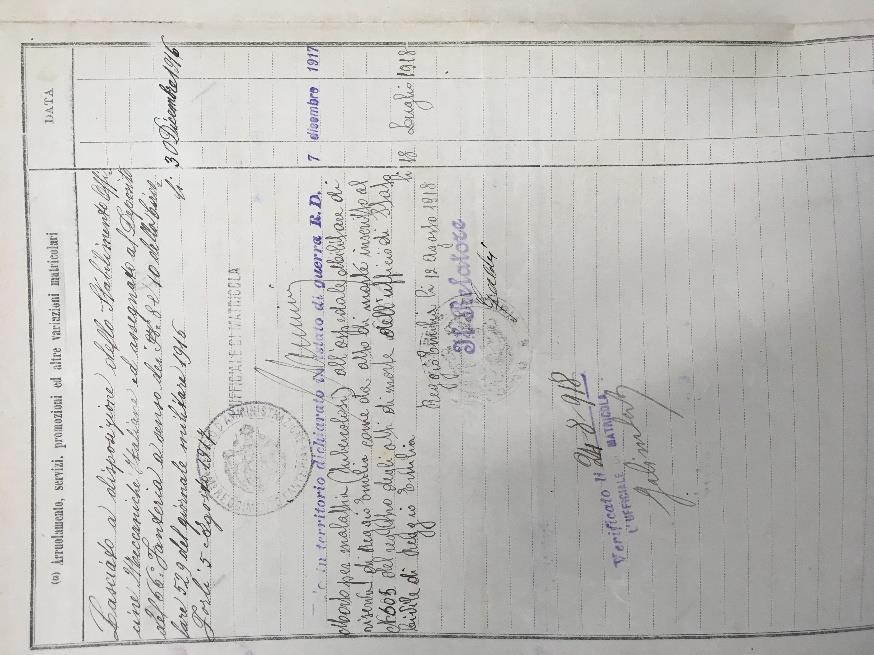 (a) Arruolamento, servizi, promozioni ed altre variazioni matricolari
DATA
Lasciato a disposizione dello Stabilimento Offi
cine Meccaniche Italiane ed assegnato al Deposito
del 66. Fanteria a senso dei 8 e 10 della Circo
lare 529 del giornale militare 1916
li 30 Dicembre 1916
5 agosto 1917
L'UFFICIALE DI MATRICOLA
in territorio dichiarato in istato di guerra R.D. 7 dicembre 1917
Morto per malattia (Tubercolosi) all'ospedale militare di
riserva di Reggio Emilia come da atto di morte inscritto al
N° 605 del registro degli atti di morte dell'ufficio di Stato
Civile di Reggio Emilia
li 18 Luglio 1918
Reggio Emilia li 12 Agosto 1918
Il Relatore
Verificato li 24-8-918
L'UFFICIALE MATRICOLA